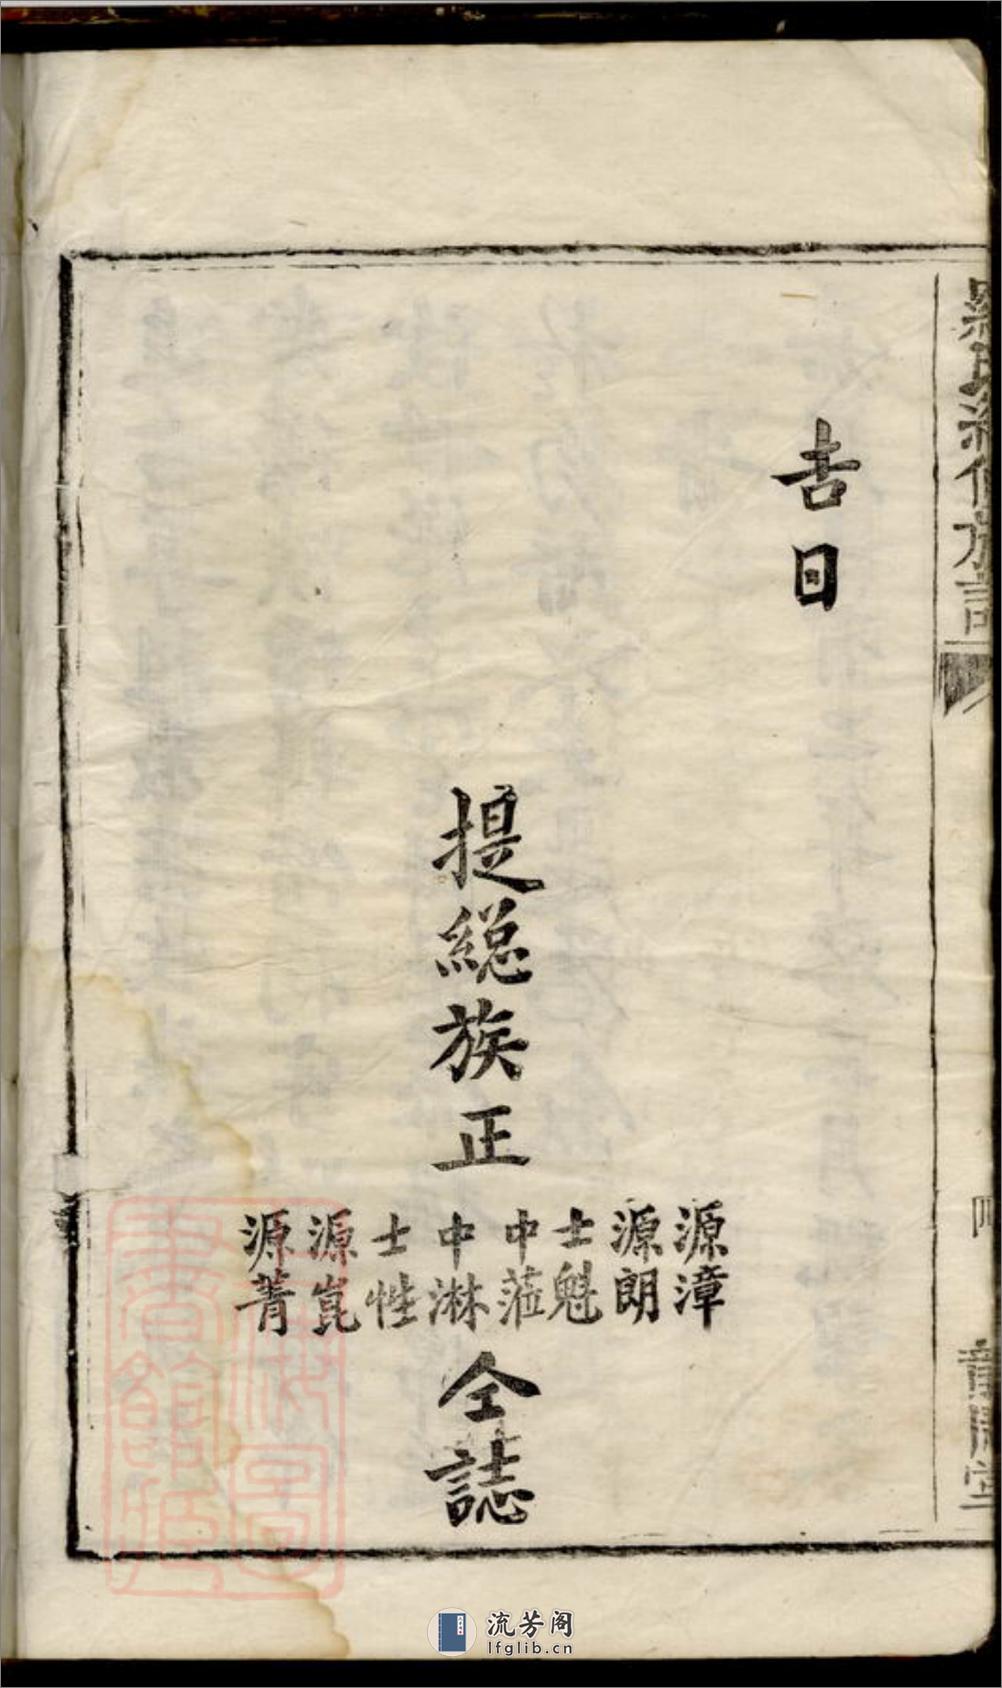 吉日
提総族正
源漳
源朗
士魁
中蒞
中淋
士性
源崑
源菁
仝誌
上海圖
書館藏
流芳阁
lfglib.cn